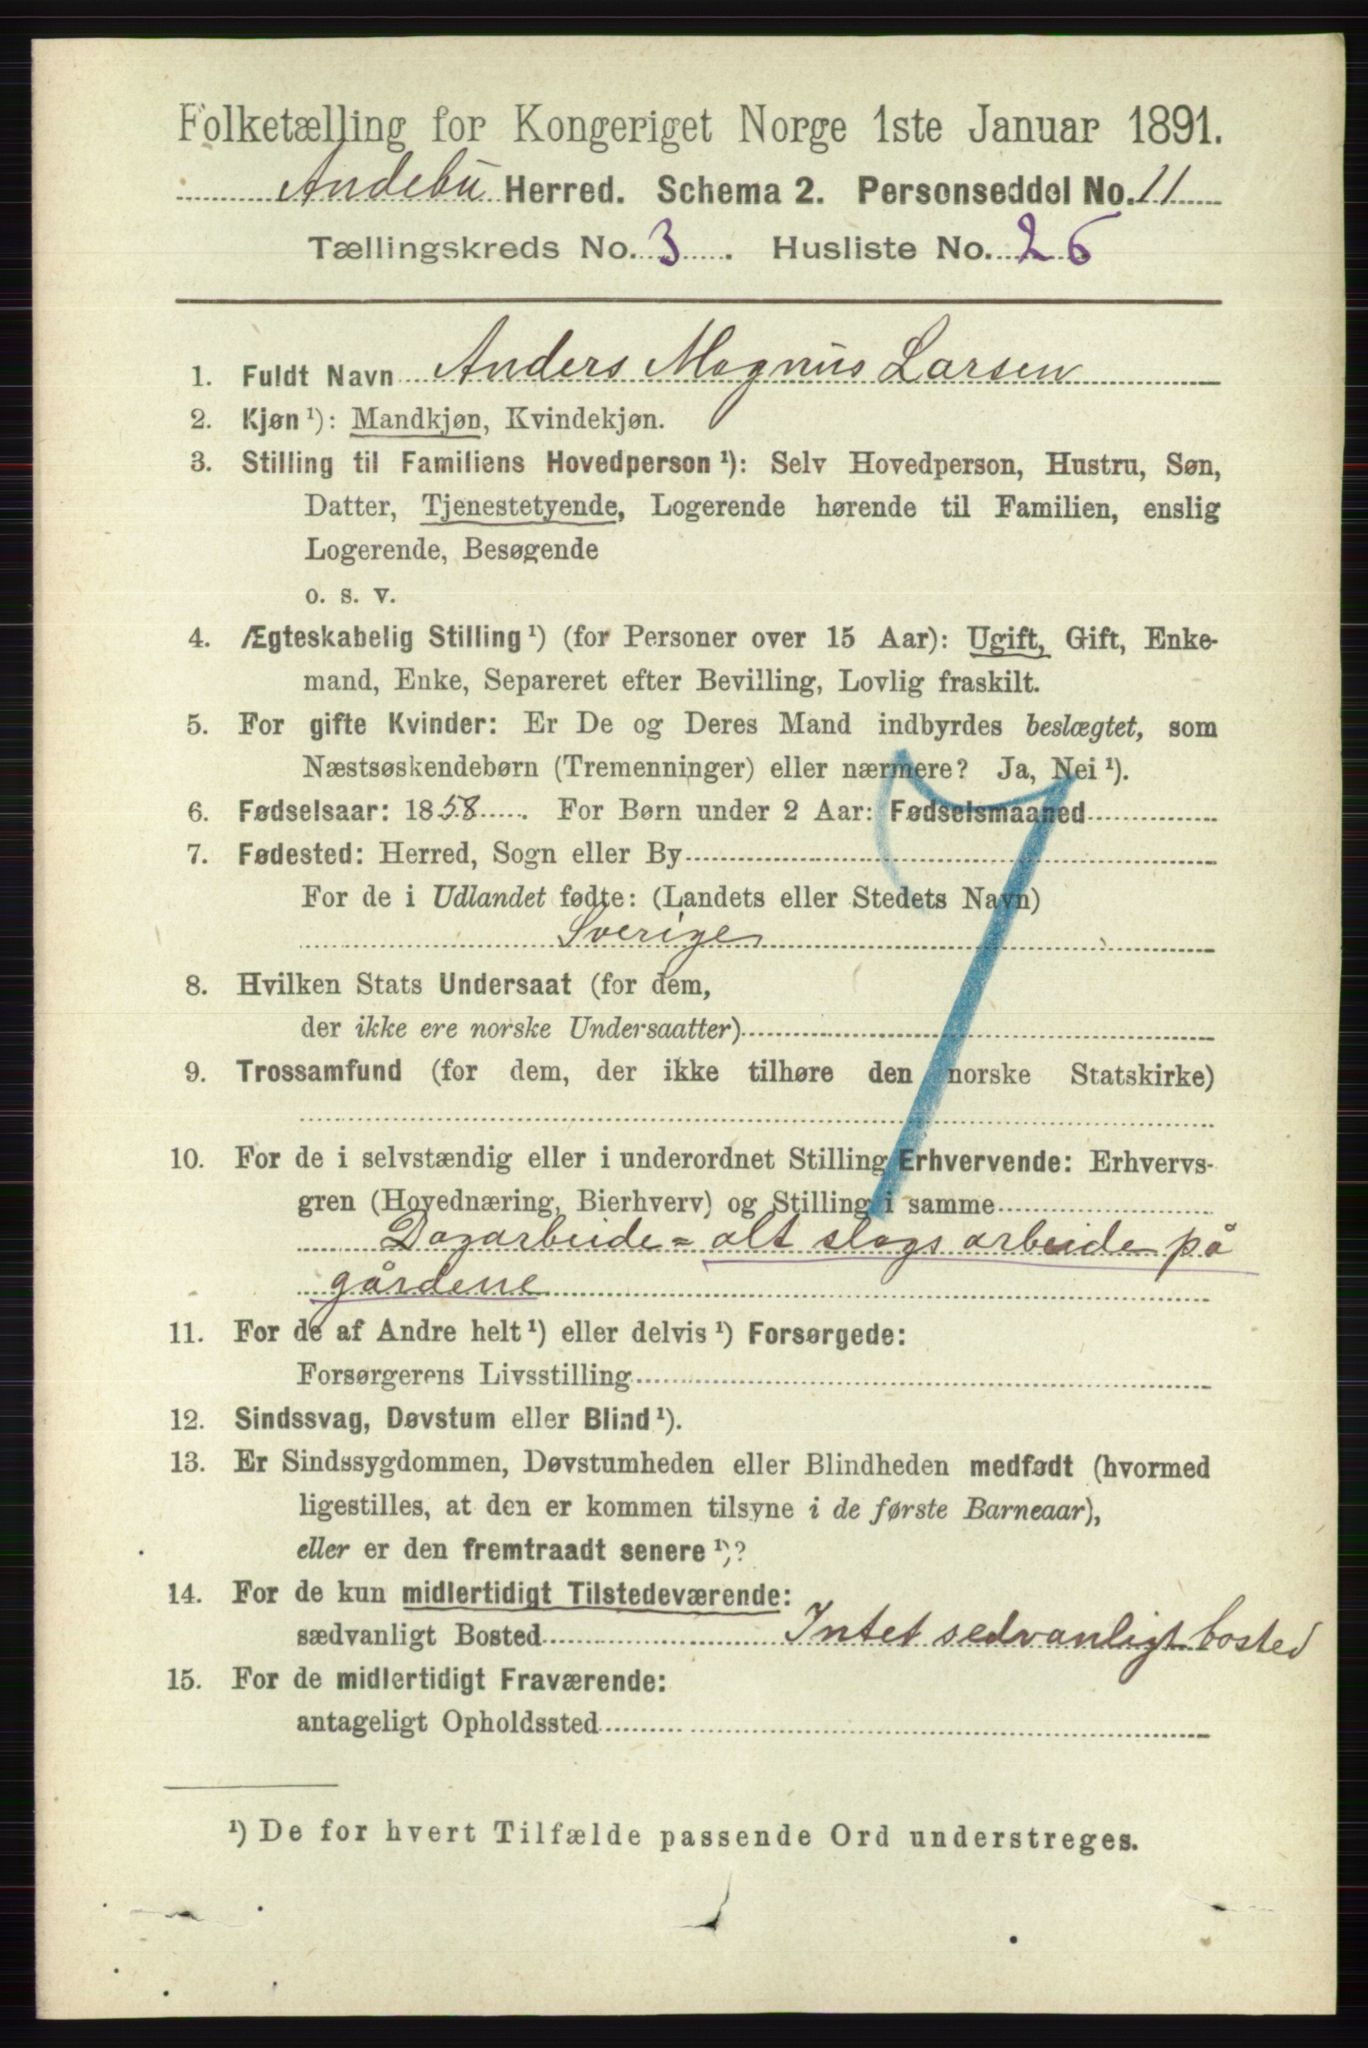 Folketælling for Kongeriget Norge 1ste Januar 1891.
Andebu Herred. Schema 2. Personseddel No. 11
Tællingskreds No. 3. Husliste No. 26
1. Fuldt Navn Anders Magnus Larsen
2. Kjøn ¹): Mandkjøn, Kvindekjøn.
3. Stilling til Familiens Hovedperson ¹): Selv Hovedperson, Hustru, Søn,
Datter, Tjenestetyende, Logerende hørende til Familien, enslig
Logerende, Besøgende
o. s. v.
4. Ægteskabelig Stilling ¹) (for Personer over 15 Aar): Ugift, Gift, Enke-
mand, Enke, Separeret efter Bevilling, Lovlig fraskilt.
5. For gifte Kvinder: Er De og Deres Mand indbyrdes beslægtet, som
Næstsøskendebørn (Tremenninger) eller nærmere? Ja, Nei ¹).
6. Fødselsaar: 1858. For Børn under 2 Aar: Fødselsmaaned
7. Fødested: Herred, Sogn eller By
For de i Udlandet fødte: (Landets eller Stedets Navn)
Sverige
8. Hvilken Stats Undersaat (for dem,
der ikke ere norske Undersaatter)
9. Trossamfund (for dem, der ikke tilhøre den norske Statskirke)
10. For de i selvstændig eller i underordnet Stilling Erhvervende: Erhvervs-
gren (Hovednæring, Bierhverv) og Stilling i samme
Dagarbeide = alt slags arbeide på
gårdene
11. For de af Andre helt ¹) eller delvis ¹) Forsørgede:
Forsørgerens Livsstilling
12. Sindssvag, Døvstum eller Blind ¹).
13. Er Sindssygdommen, Døvstumheden eller Blindheden medfødt (hvormed
ligestilles, at den er kommen tilsyne i de første Barneaar),
eller er den fremtraadt senere ¹)?
14. For de kun midlertidigt Tilstedeværende:
sædvanligt Bosted Intet sedvanligt bosted
15. For de midlertidigt Fraværende:
antageligt Opholdssted
¹) De for hvert Tilfælde passende Ord understreges.